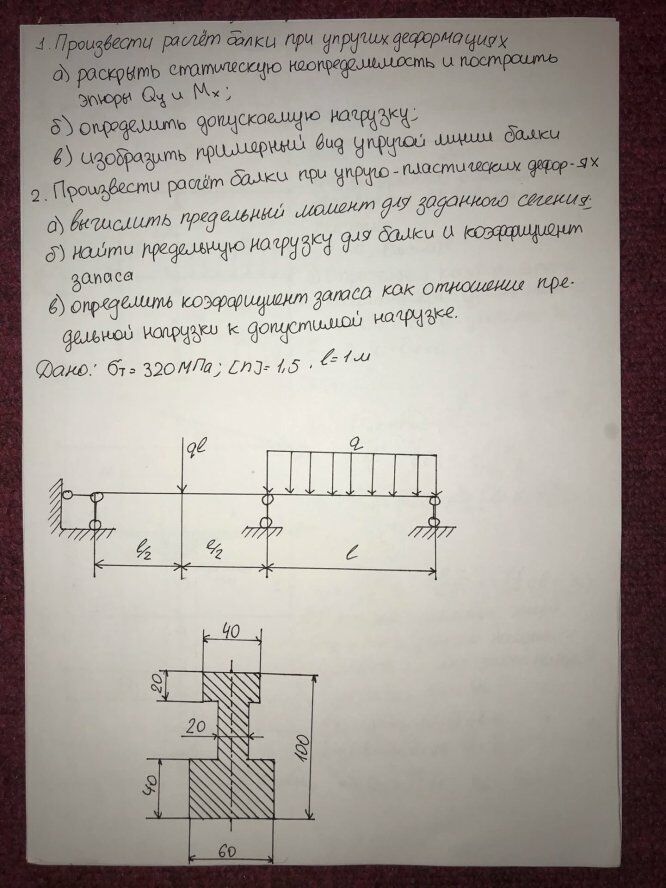 1. Произвести расчёт балки при упругих деформациях
а) раскрыть статическую неопределимость и построить
эпюры Qy и Mx;
б) определить допускаемую нагрузку;
в) изобразить примерный вид упругой линии балки
2. Произвести расчёт балки при упруго-пластических дефор-ях
а) вычислить предельный момент для заданного сечения;
б) найти предельную нагрузку для балки и коэффициент
запаса
в) определить коэффициент запаса как отношение пре-
дельной нагрузки к допустимой нагрузке.
Дано: σт = 320 МПа; [n] = 1,5. l = 1 м
ql
q
l/2
l/2
l
40
20
20
100
40
60